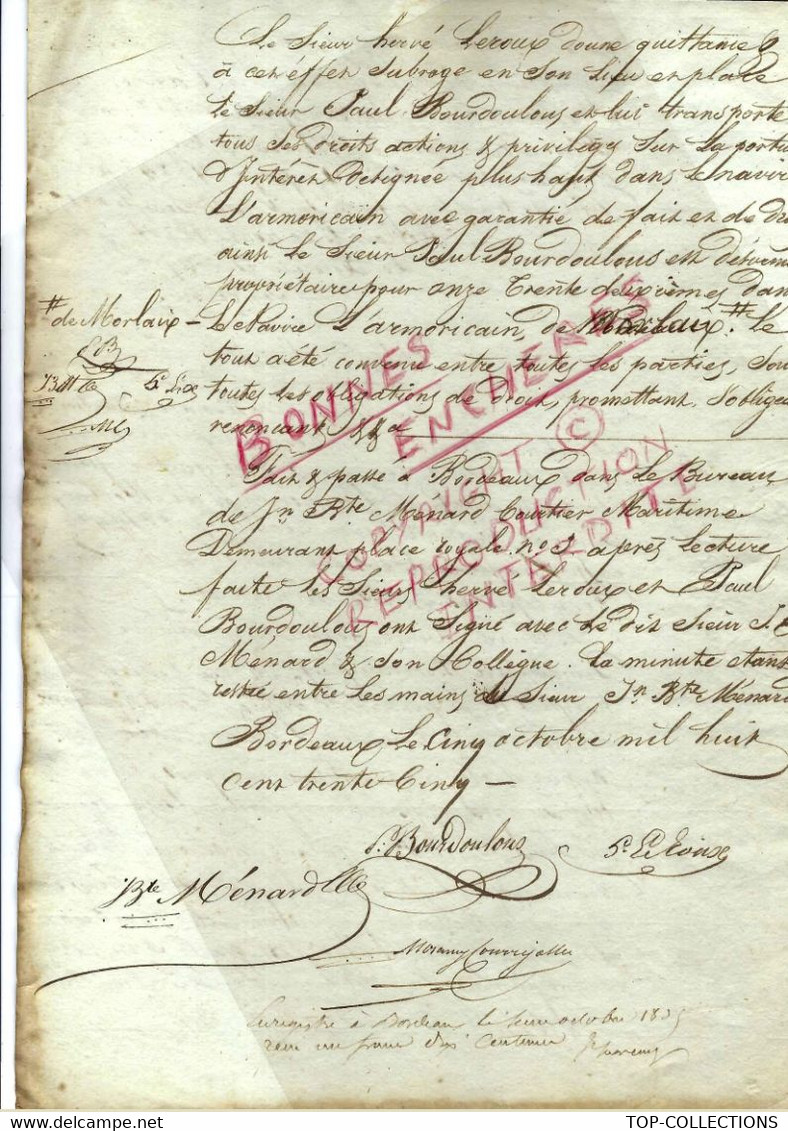 Le Sieur hervé Leroux donne quittance &
à cet éffet Subroge en Son Lieu et place
Le Sieur Paul Bourdoulous et lui transporte
tous Ses droits actions & privileges Sur La portio
d'Intérêt Désignée plus haut dans le navir
L'armoricain avec garantie de fait et de dro
ainsi Le Sieur Paul Bourdoulous est devenu
propriétaire pour onze trente deuxièmes dans
# de Morlaix –
Le Navire L'armoricain, de # Le
tout a été convenu entre toutes les parties, Sou
toutes les obligations de droit, promettant, S'obligea
renoncant &&a
Fait & passé à Bordeaux dans Le Bureau
de Jn Bte Ménard Courtier Maritime
Demeurant place royale no 5 après Lecture
faite Les Sieurs hervé Leroux et Paul
Bourdoulous ont Signé avec Le dit Sieur J. B
Ménard & Son Collègue. La minute étant
restée entre Les mains du Sieur Jn Bte Ménard
Bordeaux Le Cinq octobre mil huit
cent trente Cinq —
P. Bourdoulous
Bte Ménard
Enregistré à Bordeaux le octobre 1835
reçu un franc dix Centimes
BONNES
ENCHERES
COPYRIGHT ©
REPRODUCTION
INTERDITE
TOP-COLLECTIONS